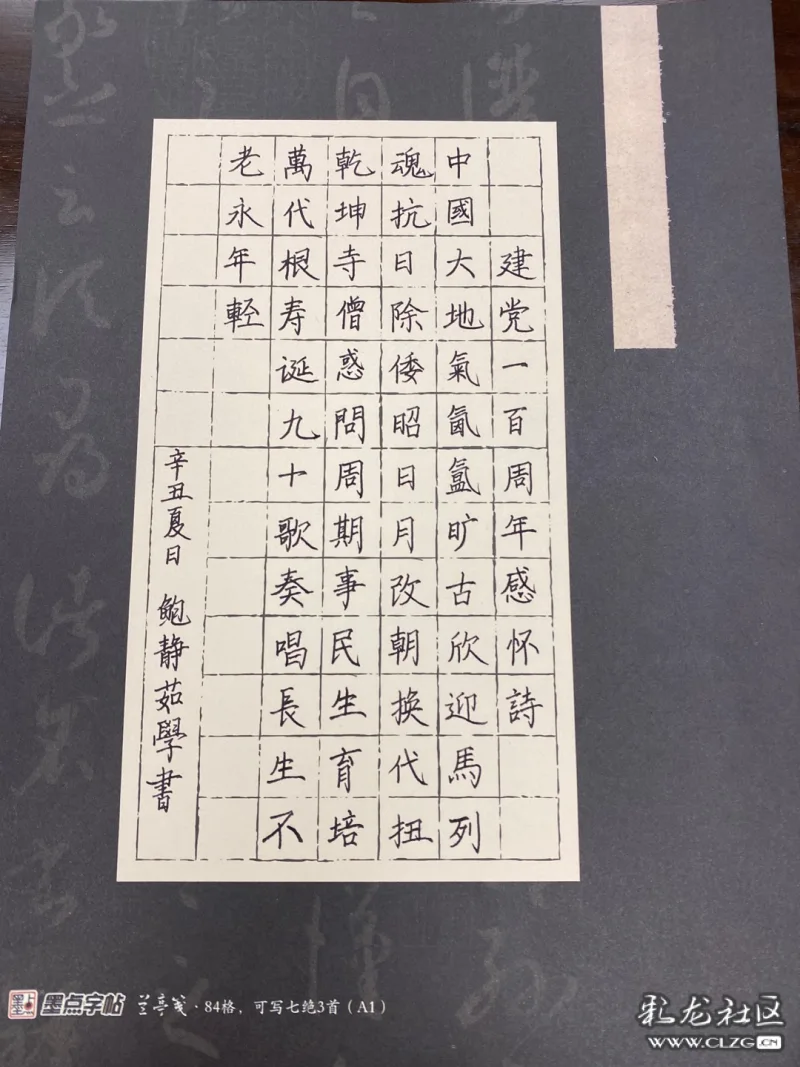 建党一百周年感怀詩
中國大地氣氤氳旷古欣迎馬列
魂抗日除倭昭日月改朝換代扭
乾坤寺僧惑問周期事民生育培
萬代根寿诞九十歌奏唱長生不
老永年輕
辛丑夏日 鲍静茹學書
墨点字帖 兰亭笺·84格，可写七绝3首（A1）
彩龙社区
WWW.CLZG.CN